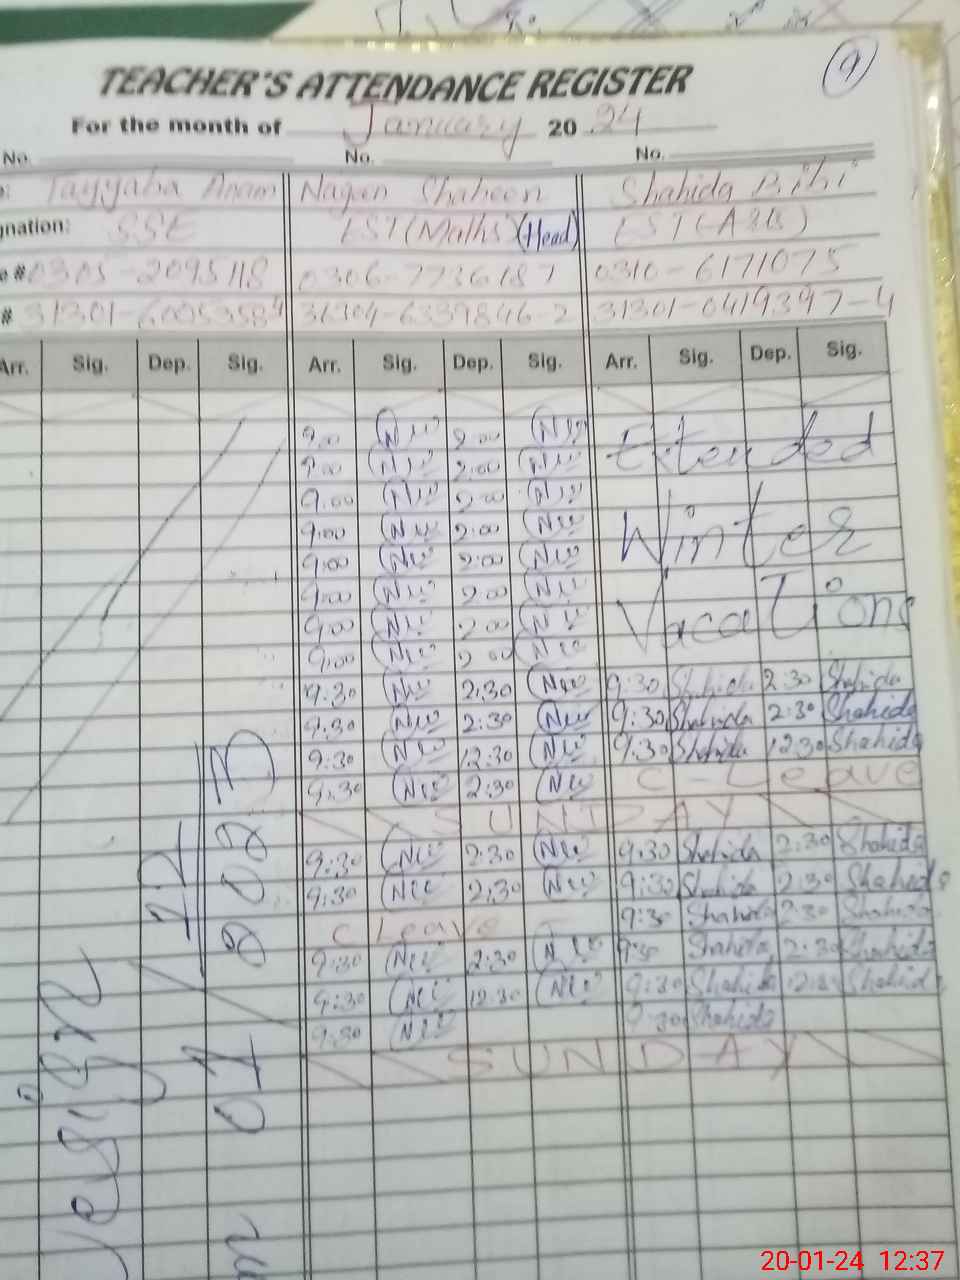 9
TEACHER'S ATTENDANCE REGISTER
For the month of January 20 24
No. No. No.
Tayyaba Anam Nagan Shaheen Shahida Bibi
gnation: SSE EST (Maths) (Head) EST (A&B)
#0305-2095118 0306-7736187 0310-6171075
# 31304-6339846-2 31301-0419397-4
Arr. Sig. Dep. Sig. Arr. Sig. Dep. Sig. Arr. Sig. Dep. Sig.
9:00 2:00 Extended
9:00 2:00
9:00 2:00
9:00 2:00 Winter
9:00 2:00
9:00 2:00
9:00 2:00 Vacations
9:00 2:00
9:30 2:30 9:30 Shahida 2:30 Shahida
9:30 2:30 9:30 Shahida 2:30 Shahida
9:30 12:30 9:30 Shahida 12:30 Shahida
9:30 2:30 C-Leave
SUNDAY
9:30 2:30 9:30 Shahida 2:30 Shahida
9:30 2:30 9:30 Shahida 2:30 Shahida
C Leave 9:30 Shahida 2:30 Shahida
9:30 2:30 9:30 Shahida 2:30 Shahida
9:30 12:30 9:30 Shahida 12:30 Shahida
9:30 9:30 Shahida
SUNDAY
20-01-24 12:37